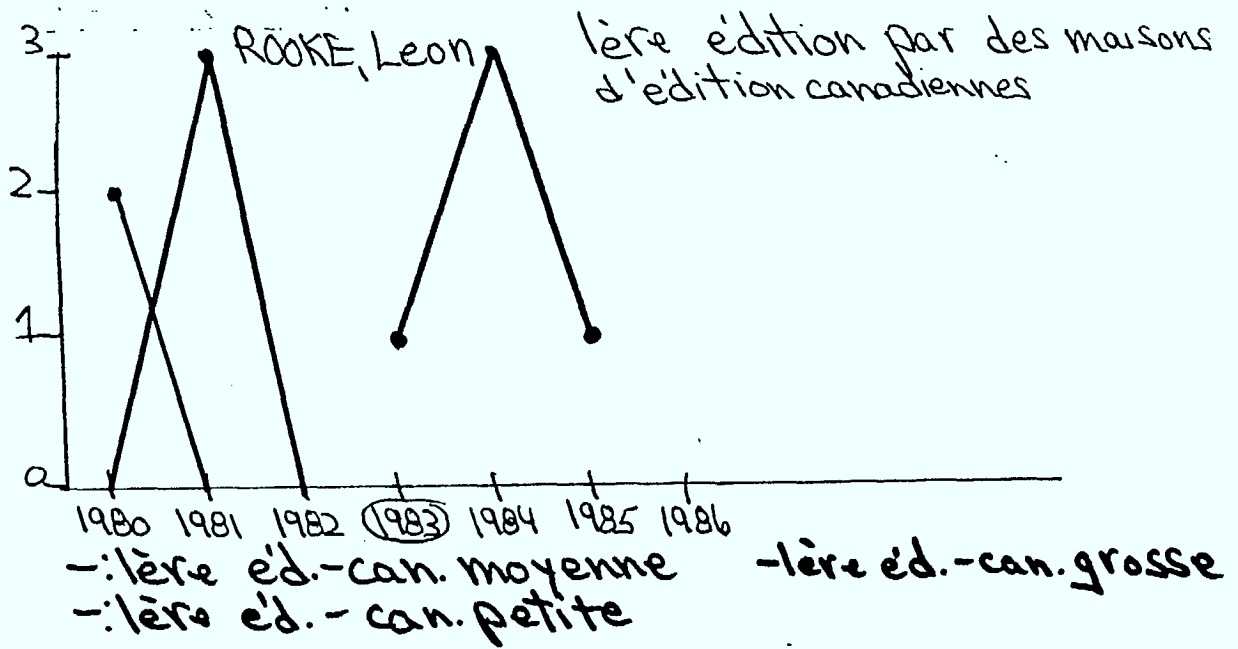 3
ROOKE, Leon
1ère édition par des maisons
d'édition canadiennes
2
1
0
1980 1981 1982 1983 1984 1985 1986
-:1ère éd.-can. moyenne -1ère éd.-can. grosse
-:1ère éd.- can. petite